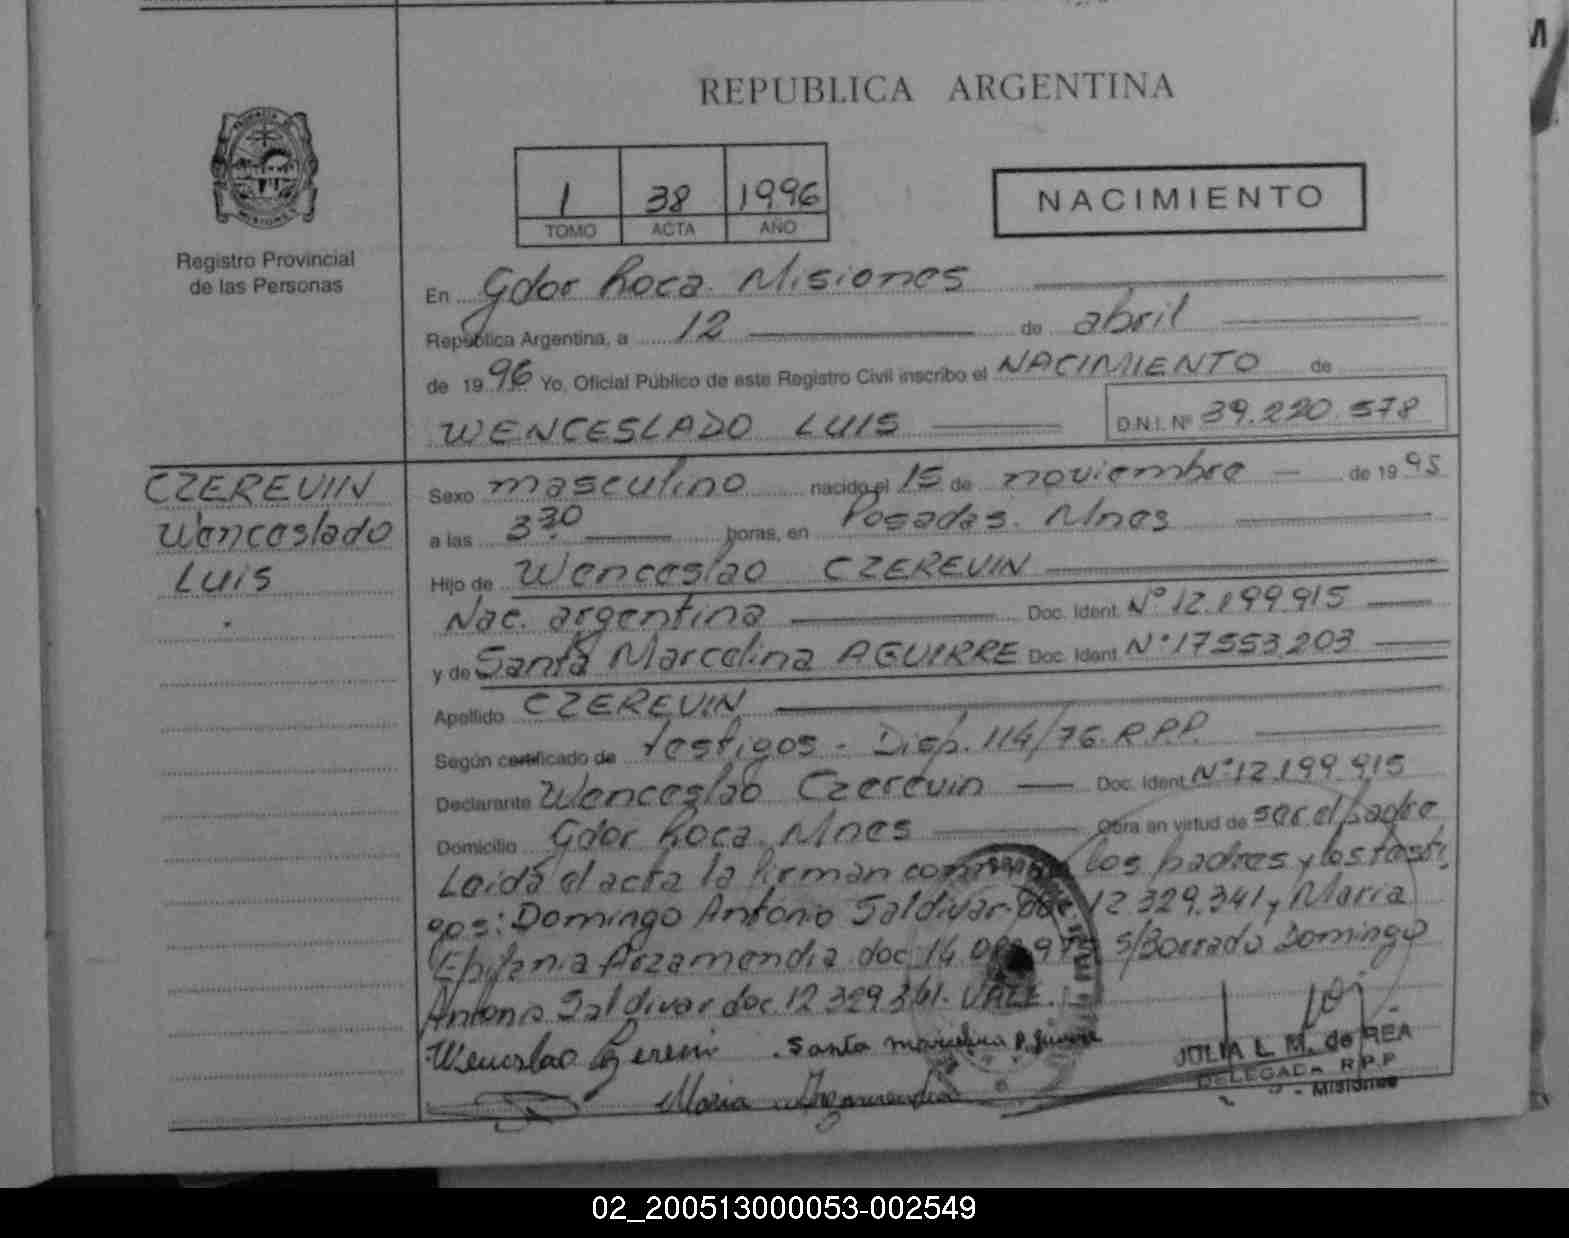 REPUBLICA ARGENTINA
1 38 1996
TOMO ACTA AÑO
NACIMIENTO
Registro Provincial
de las Personas
En Gdor Roca. Misiones
República Argentina, a 12 de abril
de 1996 Yo, Oficial Público de este Registro Civil inscribo el NACIMIENTO de
WENCESLADO LUIS D.N.I. Nº 39.220.578
CZEREVIN
Wenceslado
Luis
Sexo masculino nacido el 15 de noviembre de 1995
a las 3:30 horas, en Posadas. Mnes
Hijo de Wenceslao CZEREVIN
Nac. argentina Doc. Ident. Nº 12.199.915
y de Santa Marcelina AGUIRRE Doc. Ident. Nº 17553.203
Apellido CZEREVIN
Según certificado de testigos - Disp. 114/76. R.P.P.
Declarante Wenceslao Czerevin Doc. Ident. Nº 12.199.915
Domicilio Gdor Roca. Mnes Obra en virtud de ser el padre
Leida el acta la firman los padres y los testi
gos: Domingo Antonio Saldivar doc 12.329.341 y Maria
Epifania Arzamendia doc 14. S/Borrado Domingo
Antonio Saldivar doc. 12.329.361. VALE.
Wenceslao Czerevin Santa Marcelina Aguirre
Maria Arzamendia
JULIA L. M. de REA
DELEGADA R.P.P
Misiones
02_200513000053-002549